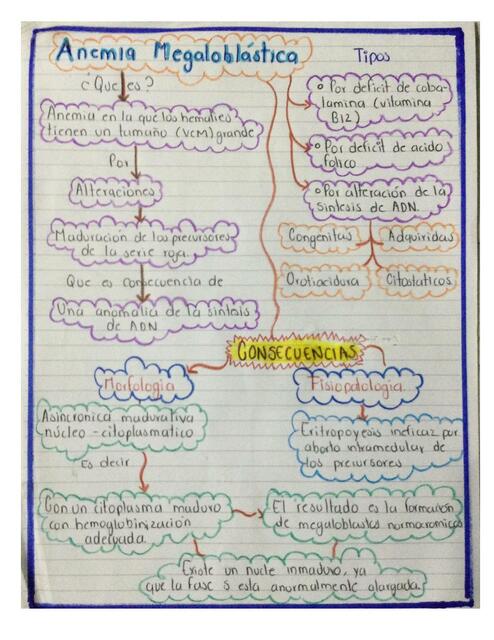 Anemia Megaloblástica
¿Que es?
Anemia en la que los hematíes
tienen un tamaño (VCM) grande
Por
Alteraciones
Maduración de los precursores
de la serie roja.
Que es consecuencia de
Una anomalia de la sintesis
de ADN
Tipos
Por deficit de coba-
lamina (vitamina
B12)
Por deficit de acido
folico
Por alteración de la
sintesis de ADN.
Congenitas
Adquiridas
Orotiacidura
Citostaticos
CONSECUENCIAS
Morfologia
Asincronica madurativa
núcleo-citoplasmatico
Es decir
Con un citoplasma maduro
con hemoglobinización
adecuada.
Fisiopatologia
Eritropoyesis ineficaz por
aborto intramedular de
los precursores
El resultado es la formación
de megaloblastos normocromicos
Existe un nucle inmaduro, ya
que la fase S esta anormalmente alargada.